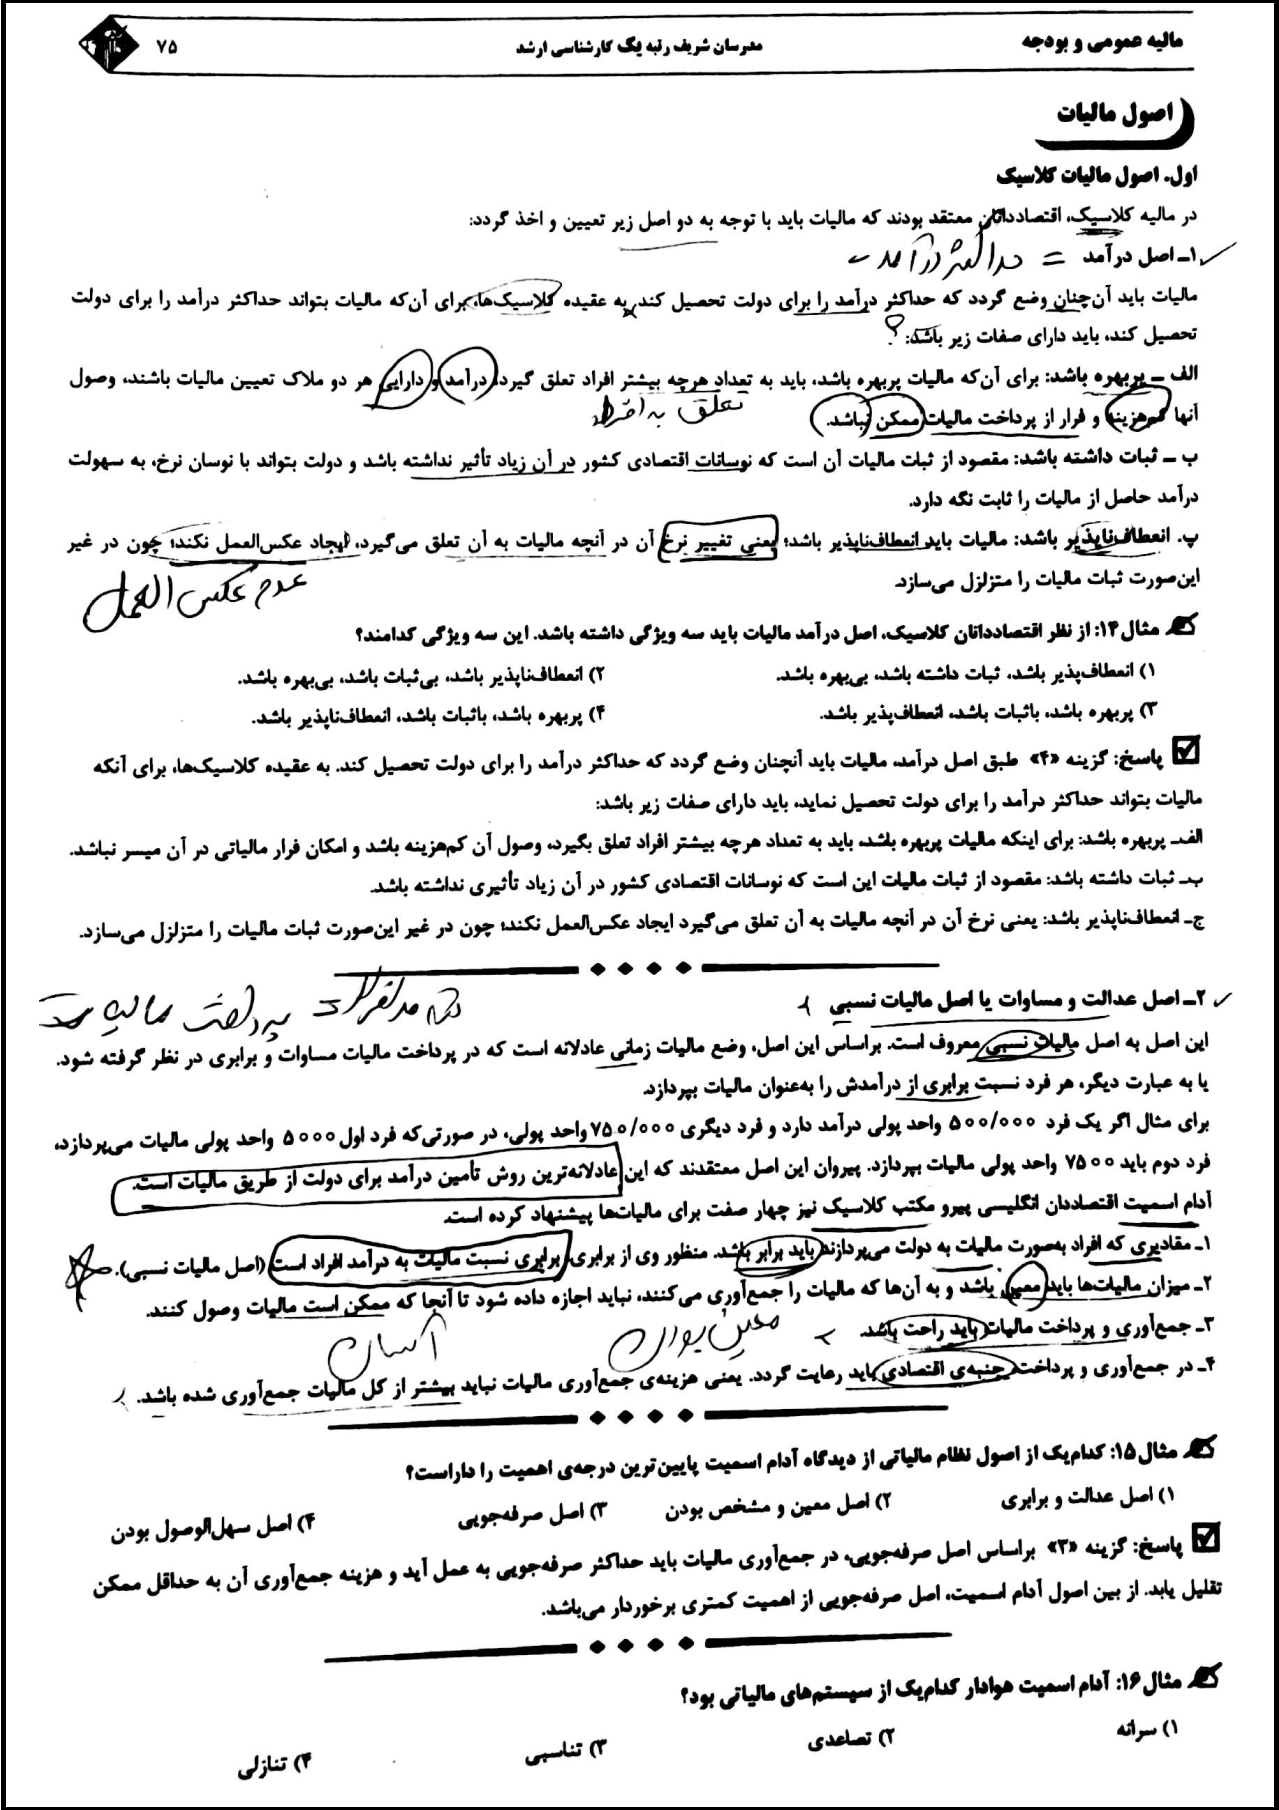 مالیه عمومی و بودجه
مدرسان شریف رتبه یک کارشناسی ارشد
۷۵
اصول مالیات
اول. اصول مالیات کلاسیک
در مالیه کلاسیک، اقتصاددانان معتقد بودند که مالیات باید با توجه به دو اصل زیر تعیین و اخذ گردد:
۱ـ اصل درآمد = حداکثر درآمد
مالیات باید آن‌چنان وضع گردد که حداکثر درآمد را برای دولت تحصیل کند، به عقیده کلاسیک‌ها، برای آن‌که مالیات بتواند حداکثر درآمد را برای دولت
تحصیل کند، باید دارای صفات زیر باشد: ؟
الف ـ پربهره باشد: برای آن‌که مالیات پربهره باشد، باید به تعداد هرچه بیشتر افراد تعلق گیرد، درآمد و دارایی هر دو ملاک تعیین مالیات باشند، وصول
آنها کم‌هزینه و فرار از پرداخت مالیات ممکن نباشد.
تعلق به افراد
ب ـ ثبات داشته باشد: مقصود از ثبات مالیات آن است که نوسانات اقتصادی کشور در آن زیاد تأثیر نداشته باشد و دولت بتواند با نوسان نرخ، به سهولت
درآمد حاصل از مالیات را ثابت نگه دارد.
پ. انعطاف‌ناپذیر باشد: مالیات باید انعطاف‌ناپذیر باشد؛ یعنی تغییر نرخ آن در آنچه مالیات به آن تعلق می‌گیرد، ایجاد عکس‌العمل نکند؛ چون در غیر
این‌صورت ثبات مالیات را متزلزل می‌سازد.
عدم عکس العمل
مثال ۱۴: از نظر اقتصاددانان کلاسیک، اصل درآمد مالیات باید سه ویژگی داشته باشد. این سه ویژگی کدامند؟
۱) انعطاف‌پذیر باشد، ثبات داشته باشد، بی‌بهره باشد.
۲) انعطاف‌ناپذیر باشد، بی‌ثبات باشد، بی‌بهره باشد.
۳) پربهره باشد، باثبات باشد، انعطاف‌پذیر باشد.
۴) پربهره باشد، باثبات باشد، انعطاف‌ناپذیر باشد.
پاسخ: گزینه «۴» طبق اصل درآمد، مالیات باید آنچنان وضع گردد که حداکثر درآمد را برای دولت تحصیل کند. به عقیده کلاسیک‌ها، برای آنکه
مالیات بتواند حداکثر درآمد را برای دولت تحصیل نماید، باید دارای صفات زیر باشد:
الف‌ـ پربهره باشد: برای اینکه مالیات پربهره باشد، باید به تعداد هرچه بیشتر افراد تعلق بگیرد، وصول آن کم‌هزینه باشد و امکان فرار مالیاتی در آن میسر نباشد.
ب‌ـ ثبات داشته باشد: مقصود از ثبات مالیات این است که نوسانات اقتصادی کشور در آن زیاد تأثیری نداشته باشد.
ج‌ـ انعطاف‌ناپذیر باشد: یعنی نرخ آن در آنچه مالیات به آن تعلق می‌گیرد ایجاد عکس‌العمل نکند؛ چون در غیر این‌صورت ثبات مالیات را متزلزل می‌سازد.
۲ـ اصل عدالت و مساوات یا اصل مالیات نسبی
پرداخت مالیات
این اصل به اصل مالیات نسبی معروف است. براساس این اصل، وضع مالیات زمانی عادلانه است که در پرداخت مالیات مساوات و برابری در نظر گرفته شود.
یا به عبارت دیگر، هر فرد نسبت برابری از درآمدش را به‌عنوان مالیات بپردازد.
برای مثال اگر یک فرد ۵۰۰/۰۰۰ واحد پولی درآمد دارد و فرد دیگری ۷۵۰/۰۰۰ واحد پولی، در صورتی‌که فرد اول ۵۰۰۰ واحد پولی مالیات می‌پردازد،
فرد دوم باید ۷۵۰۰ واحد پولی مالیات بپردازد. پیروان این اصل معتقدند که این عادلانه‌ترین روش تأمین درآمد برای دولت از طریق مالیات است.
آدام اسمیت اقتصاددان انگلیسی پیرو مکتب کلاسیک نیز چهار صفت برای مالیات‌ها پیشنهاد کرده است.
۱ـ مقادیری که افراد به‌صورت مالیات به دولت می‌پردازند باید برابر باشد. منظور وی از برابری، برابری نسبت مالیات به درآمد افراد است (اصل مالیات نسبی).
۲ـ میزان مالیات‌ها باید معین باشد و به آن‌ها که مالیات را جمع‌آوری می‌کنند، نباید اجازه داده شود تا آنجا که ممکن است مالیات وصول کنند.
۳ـ جمع‌آوری و پرداخت مالیات باید راحت باشد.
معین بودن
آسان
۴ـ در جمع‌آوری و پرداخت جنبه‌ی اقتصادی باید رعایت گردد. یعنی هزینه‌ی جمع‌آوری مالیات نباید بیشتر از کل مالیات جمع‌آوری شده باشد.
مثال ۱۵: کدام‌یک از اصول نظام مالیاتی از دیدگاه آدام اسمیت پایین‌ترین درجه‌ی اهمیت را داراست؟
۱) اصل عدالت و برابری
۲) اصل معین و مشخص بودن
۳) اصل صرفه‌جویی
۴) اصل سهل‌الوصول بودن
پاسخ: گزینه «۳» براساس اصل صرفه‌جویی، در جمع‌آوری مالیات باید حداکثر صرفه‌جویی به عمل آید و هزینه جمع‌آوری آن به حداقل ممکن
تقلیل یابد. از بین اصول آدام اسمیت، اصل صرفه‌جویی از اهمیت کمتری برخوردار می‌باشد.
مثال ۱۶: آدام اسمیت هوادار کدام‌یک از سیستم‌های مالیاتی بود؟
۱) سرانه
۲) تصاعدی
۳) تناسبی
۴) تنازلی